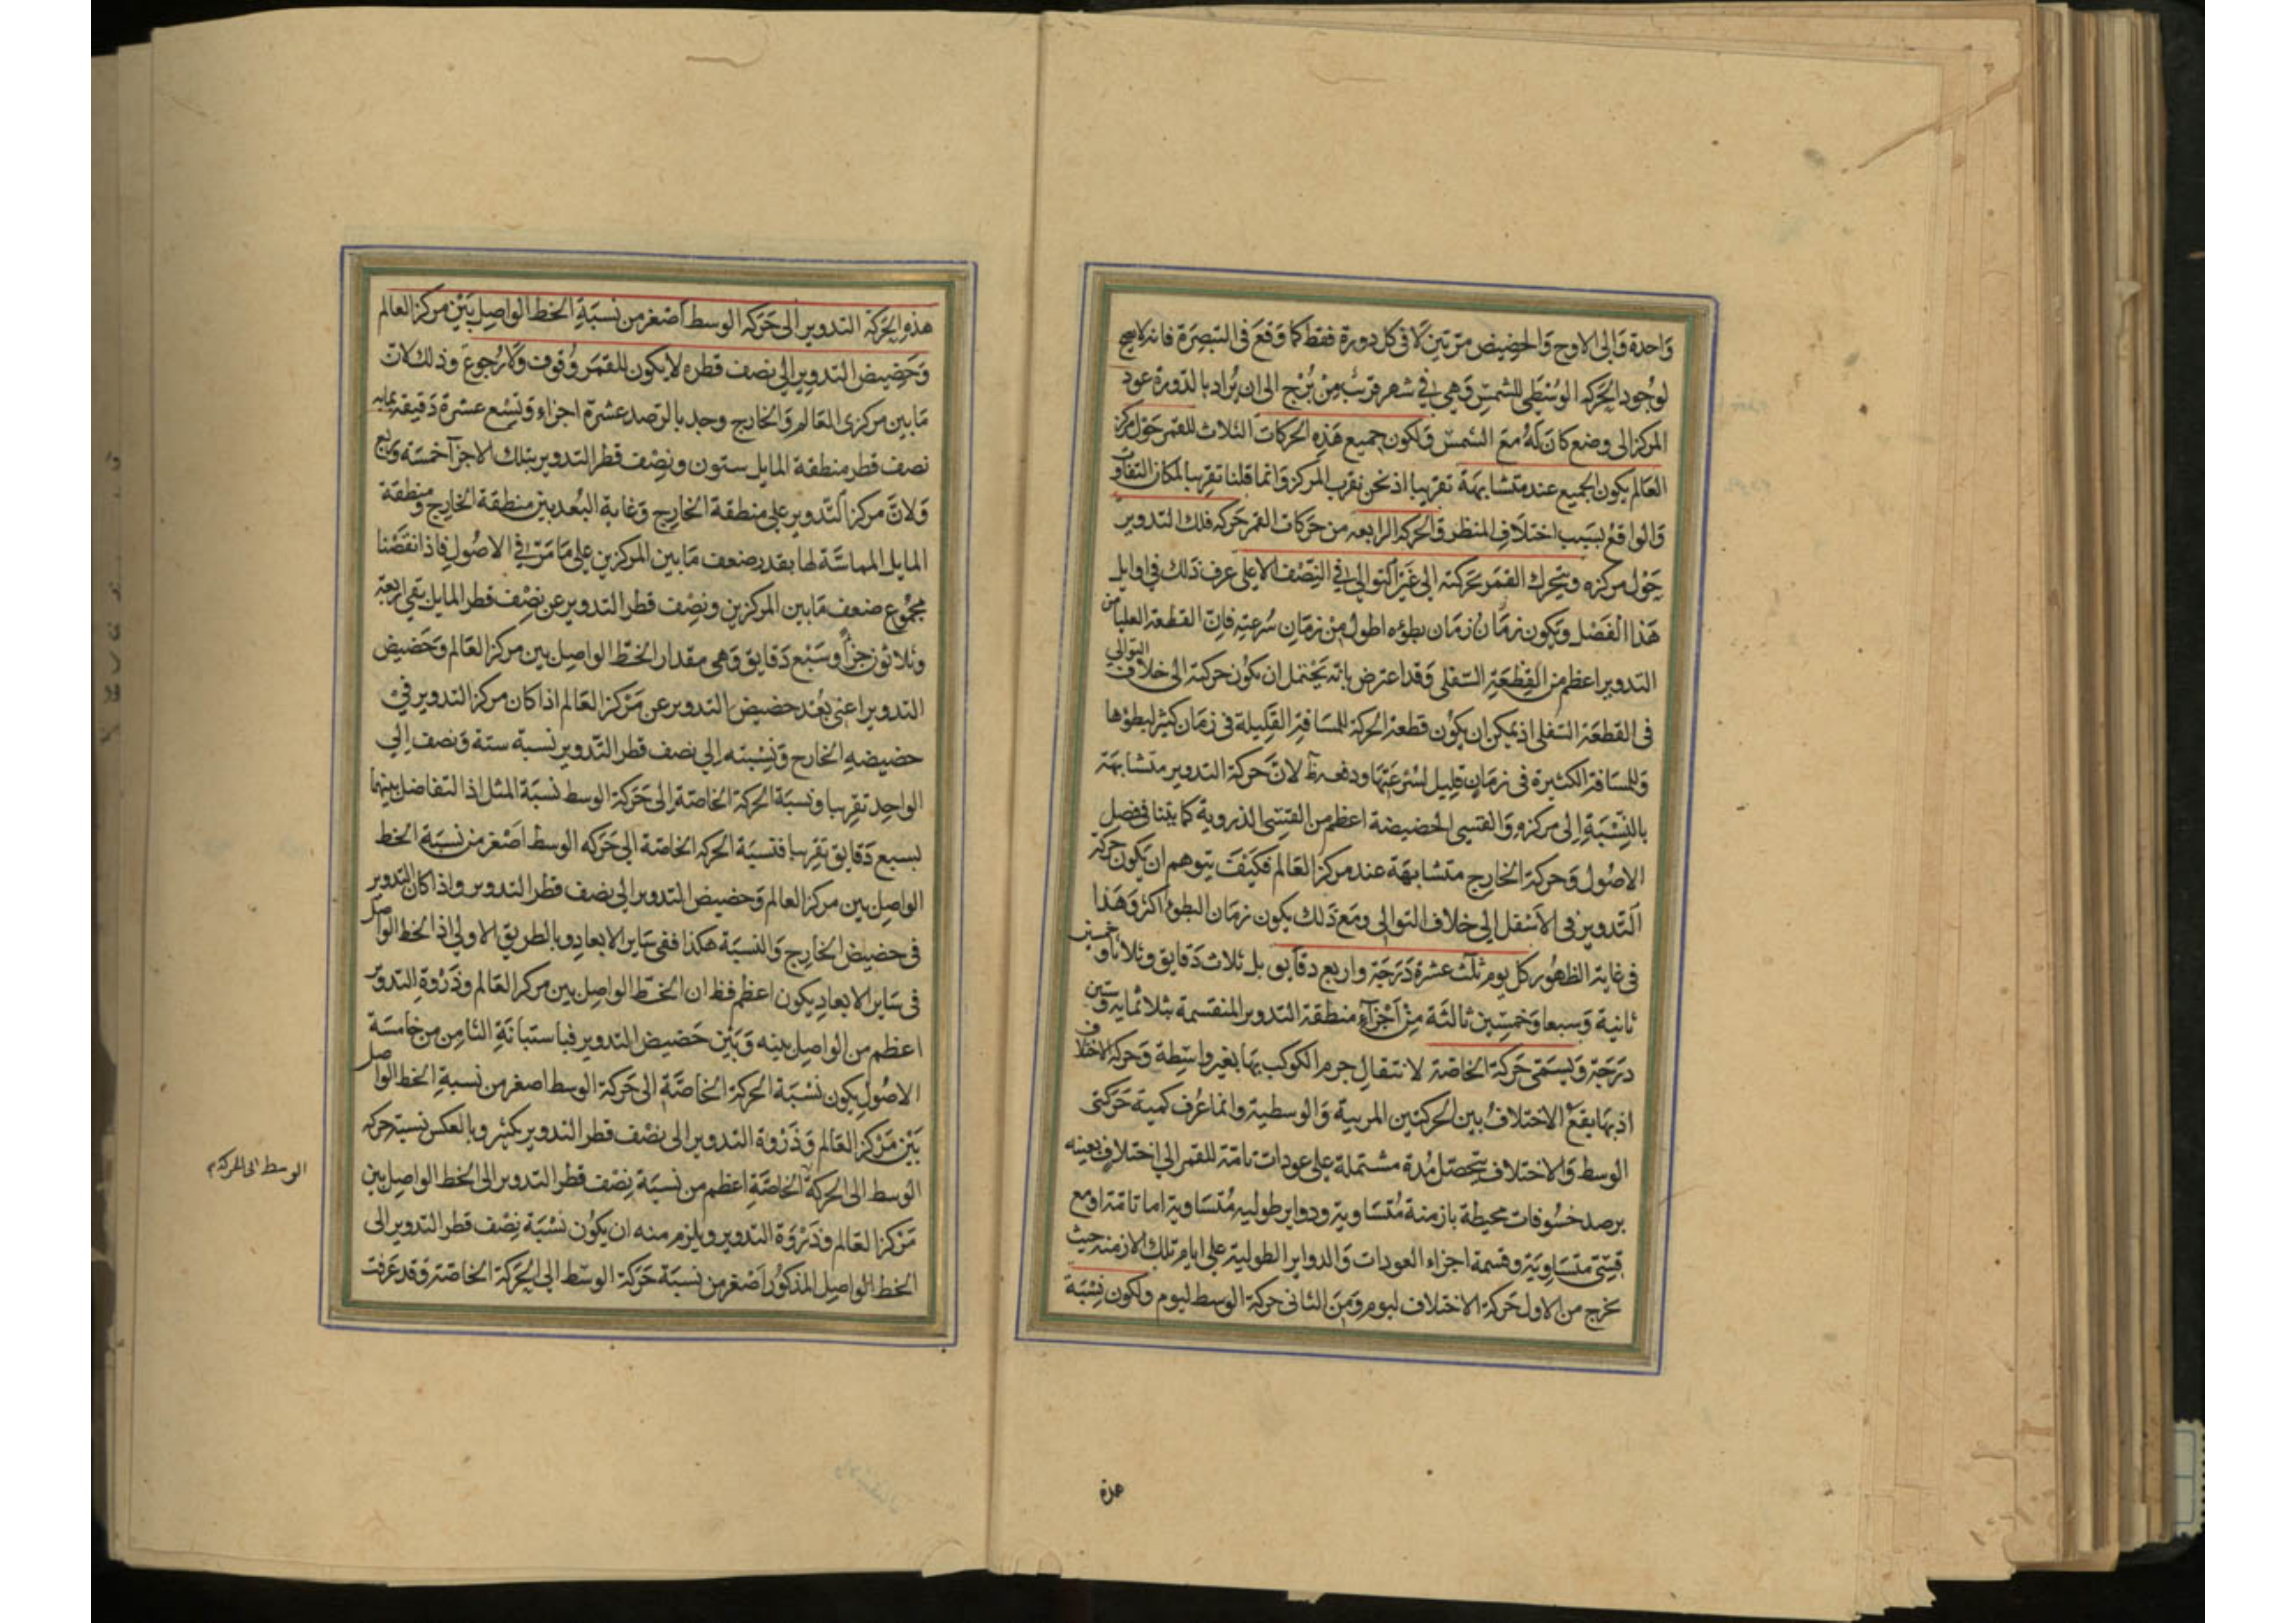 واحدة والى الاوج والحضيض مرتين لا فى كل دورة فقط كما وقع فى التبصرة فانه لا يصح
لوجود الحركة الوسطى للشمس وهى فى شهر قريب من برج الى ان يراد بالدورة عود
المركز الى وضع كان له مع الشمس ولكون جميع هذه الحركات الثلاث للقمر حول مركز
العالم يكون الجميع عنده متشابهة تقريبا اذ نحن بقرب المركز وانما قلنا تقريبا لمكان التفاوت
والواقع بسبب اختلاف المنظر والحركة الرابعه من حركات القمر حركه فلك التدوير
حول مركزه ويتحرك القمر بحركته الى غير التوالى فى النصف الاعلى عرف ذلك فى اوايل
هذا الفصل ويكون زمان زمان بطؤه اطول من زمان سرعته فان القطعة العليا من
التدوير اعظم من القطعة السفلى وقد اعترض بانه يحتمل ان يكون حركته الى خلاف التوالى
فى القطعة السفلى اذ يمكن ان يكون قطعة الحركة للمسافة القليلة فى زمان كثير لبطؤها
وللمسافة الكثيرة فى زمان قليل لسرعتها ودفعه ظ لان حركة التدوير متشابهة
بالنسبة الى مركزه والقسى الحضيضة اعظم من القسى الذروية كما بينا فى فصل
الاصول وحركة الخارج متشابهة عند مركز العالم فكيف يتوهم ان يكون حركة
التدوير فى الاسفل الى خلاف التوالى ومع ذلك يكون زمان البطوء اكثر وهذا
فى غاية الظهور كل يوم ثلث عشرة درجة واربع دقايق بل ثلاث دقايق وثلاثا وخمسين
ثانية وسبعا وخمسين ثالثة من اجزاء منطقة التدوير المنقسمة بثلاثمايه وستين
درجة ويسمى حركة الخاصة لانتقال جرم الكوكب بها بغير واسطة وحركة الاختلاف
اذ بها يقع الاختلاف بين الحركتين المريية والوسطية وانما عرف كمية حركتى
الوسط والاختلاف بتحصل مدة مشتملة على عودات تامة للقمر الى اختلاف بعينه
برصد خسوفات محيطة بازمنة متساوية ودواير طوليه متساوية اما تامة او مع
قسى متساوية وقسمة اجزاء العودات والدواير الطولية على ايام تلك الازمنه حيث
يخرج من الاول حركة الاختلاف ليوم ومن الثانى حركة الوسط ليوم ولكون نسبة
هذه
هذه الحركة التدوير الى حركه الوسط اصغر من نسبة الخط الواصل بين مركز العالم
وحضيض التدوير الى نصف قطره لا يكون للقمر وقوف ولا رجوع وذلك لان
ما بين مركزى العالم والخارج وجد بالرصد عشرة اجزاء وتسع عشرة دقيقه بما به
نصف قطر منطقة المايل ستون ونصف قطر التدوير بتلك الاجزآ خمسة وربع
ولان مركز التدوير على منطقة الخارج وغاية البعد بين منطقة الخارج ومنطقة
المايل المماسة لها بقدر ضعف ما بين المركزين على ما مر فى الاصول فاذا نقصنا
مجموع ضعف ما بين المركزين ونصف قطر التدوير عن نصف قطر المايل بقى اربعة
وثلاثون جزأ وسبع دقايق وهى مقدار الخط الواصل بين مركز العالم وحضيض
التدوير اعنى بعد حضيض التدوير عن مركز العالم اذا كان مركز التدوير فى
حضيضه الخارج ونسبته الى نصف قطر التدوير نسبة ستة ونصف الى
الواحد تقريبا ونسبة الحركة الخاصة الى حركة الوسط نسبة المثل اذ التفاضل بينهما
لسبع دقايق تقريبا فنسبة الحركة الخاصة الى حركه الوسط اصغر من نسبة الخط
الواصل بين مركز العالم وحضيض التدوير الى نصف قطر التدوير واذا كان التدوير
فى حضيض الخارج والنسبة هكذا ففى ساير الابعاد وبالطريق الاولى اذ الخط الواصل
فى ساير الابعاد يكون اعظم فظ ان الخط الواصل بين مركز العالم وذروة التدوير
اعظم من الواصل بينه وبين حضيض التدوير فباستبانة الثامن من خامسة
الاصول يكون نسبة الحركة الخاصة الى حركة الوسط اصغر من نسبة الخط الواصل
بين مركز العالم وذروة التدوير الى نصف قطر التدوير بكثير وبالعكس نسبة حركه
الوسط الى الحركة الخاصة اعظم من نسبة نصف قطر التدوير الى الخط الواصل بين
مركز العالم وذروة التدوير ويلزم منه ان يكون نسبة نصف قطر التدوير الى
الخط الواصل المذكور اصغر من نسبة حركة الوسط الى الحركة الخاصة وقد عرفت
الوسط الى الحركة